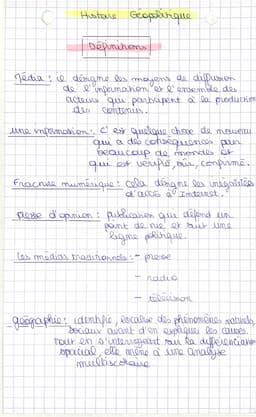 Histoire Géopolitique
Définitions
Média : il désigne les moyens de diffusion
de l'information et l'ensemble des
acteurs qui participent à la production
des contenus.
une information : C'est quelque chose de nouveau
qui a des conséquences pour
beaucoup de mondes et
qui est vérifié, sûr, confirmé.
Fracture numérique : Cela désigne les inégalités
d'accès à Internet.
presse d'opinion : publication qui défend un
point de vue et suit une
ligne politique.
Les médias traditionnels : - presse
- radio
- télévision
géographie : identifie, localise des phénomènes naturels,
sociaux avant d'en expliquer les causes.
Tout en s'interrogeant sur la différenciation
spacial, elle mène à une analyse
multiscalaire